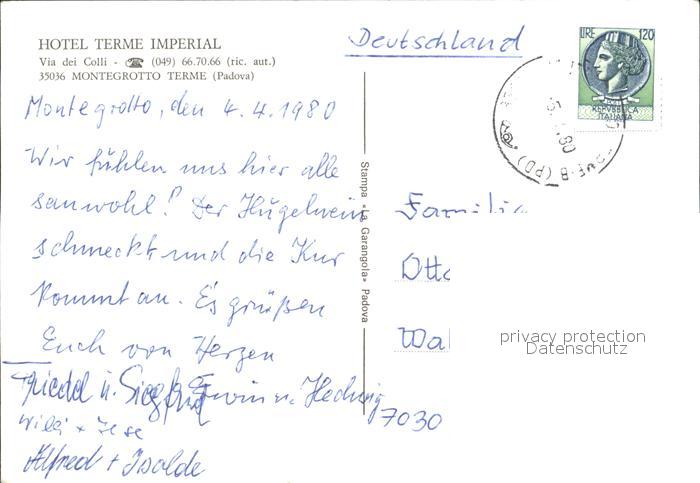 HOTEL TERME IMPERIAL
Via dei Colli - ☎ (049) 66.70.66 (ric. aut.)
35036 MONTEGROTTO TERME (Padova)
Montegrotto, den 4.4.1980
Wir fühlen uns hier alle
sauwohl! Der Hügelwein
schmeckt und die Kur
kommt an. Es grüßen
Euch von Herzen
Friedel u. Siegfried Erwin u. Hedwig
Willi + Ilse
Alfred + Isolde
Stampa «La Garangola» Padova
Deutschland
LIRE 120
REPVBBLICA
ITALIANA
(PD)
Familie
Otto
Wal
privacy protection
Datenschutz
7030